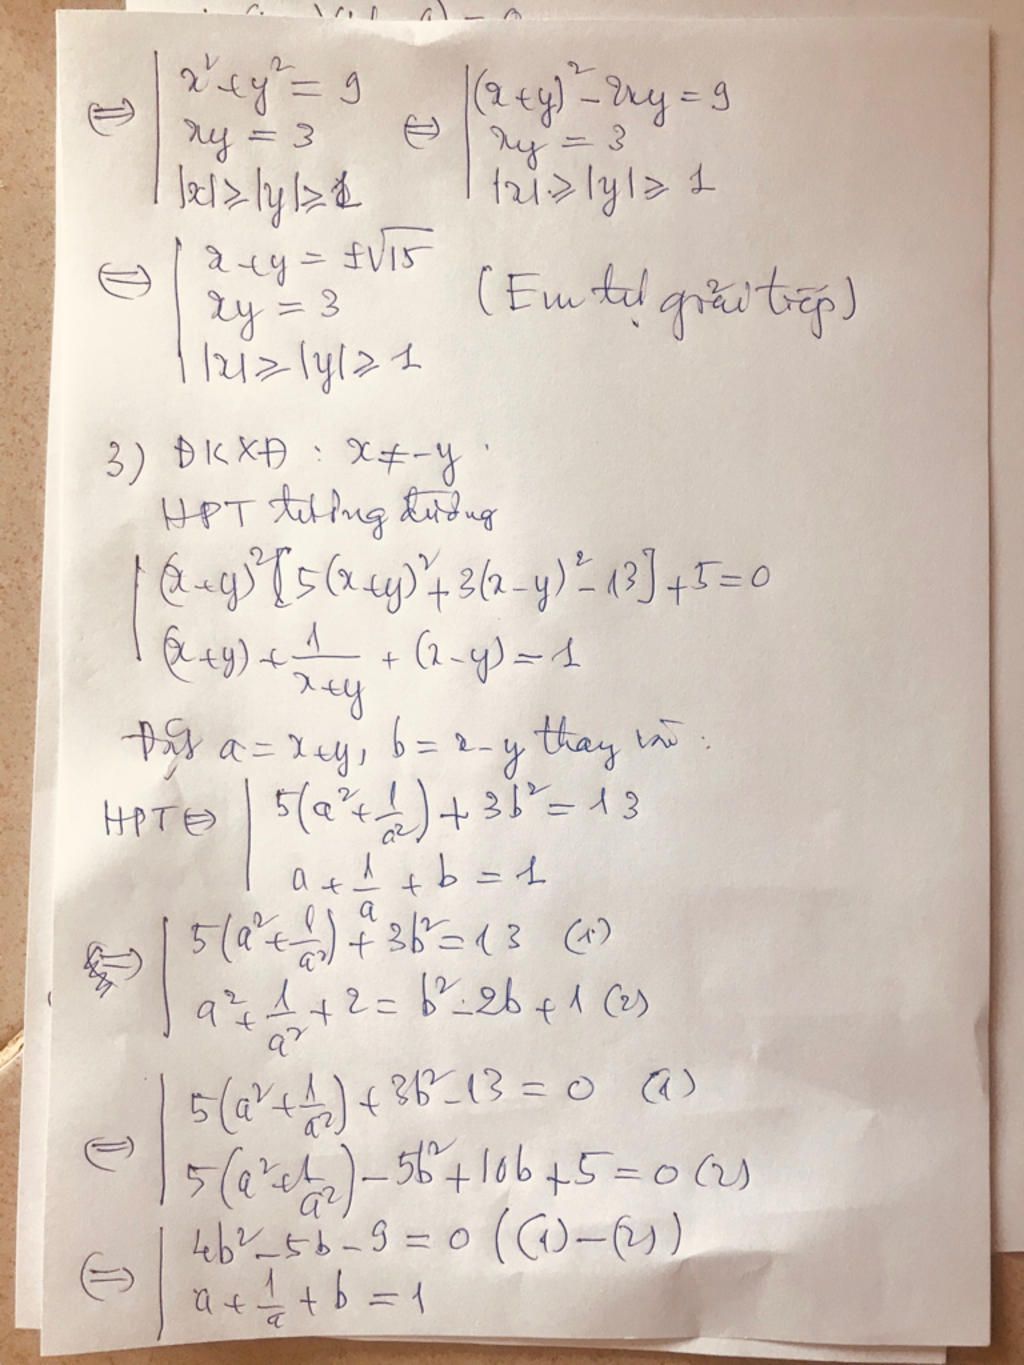 ⇔ | x² + y² = 9 ⇔ | (x+y)² - 2xy = 9
xy = 3 xy = 3
|x| ≥ |y| ≥ 1 |x| ≥ |y| ≥ 1
⇔ | x + y = ±√15
xy = 3 (Em tự giải tiếp)
|x| ≥ |y| ≥ 1
3) ĐKXĐ : x ≠ -y .
HPT tương đương
| (x+y)² [5(x+y)² + 3(x-y)² - 13] + 5 = 0
(x+y) + 1/(x+y) + (x-y) = 1
Đặt a = x+y, b = x-y thay vào :
HPT ⇔ | 5(a² + 1/a²) + 3b² = 13
a + 1/a + b = 1
⇔ | 5(a² + 1/a²) + 3b² = 13 (1)
a² + 1/a² + 2 = b² - 2b + 1 (2)
⇔ | 5(a² + 1/a²) + 3b² - 13 = 0 (1)
5(a² + 1/a²) - 5b² + 10b + 5 = 0 (2)
⇔ | 4b² - 5b - 9 = 0 ((1) - (2))
a + 1/a + b = 1